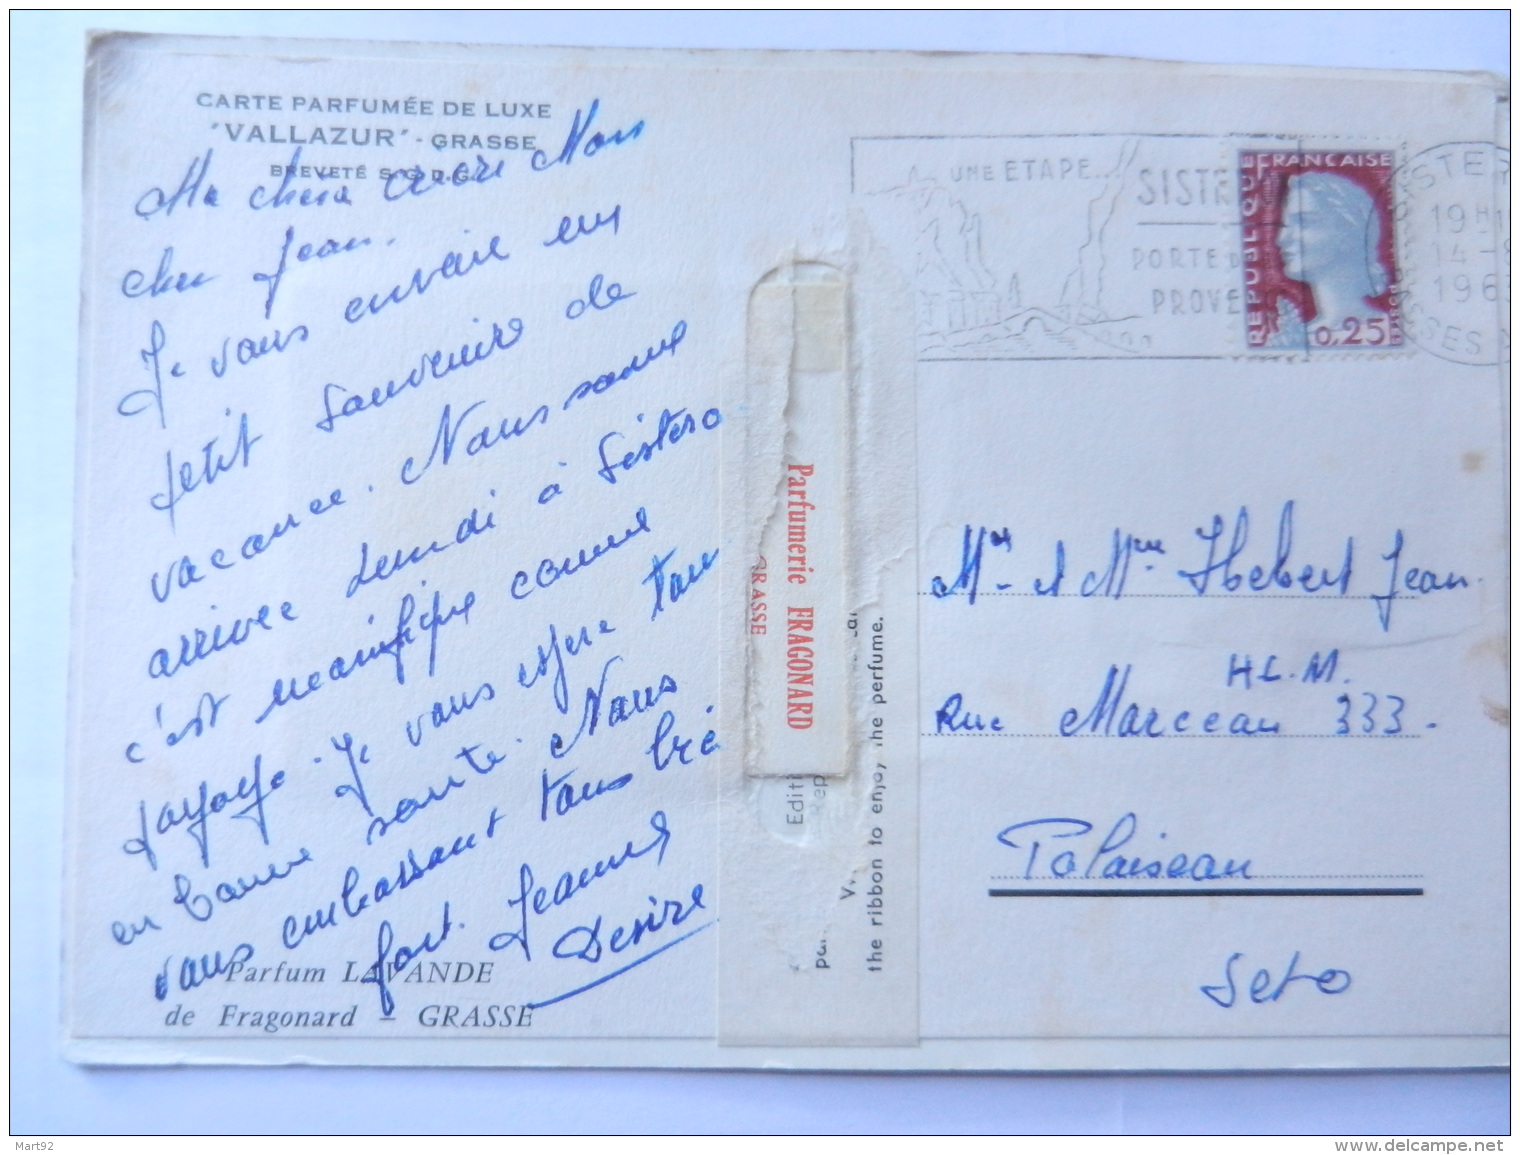 CARTE PARFUMÉE DE LUXE
"VALLAZUR" - GRASSE
BREVETÉ S.G.D.G.
Ma chère
cher Jean.
Je vous envoie un
petit souvenir de
vacance. Nous somme
arrivee Lundi à Sistero
c'est magnifique comme
paysage. Je vous espere tous
en bonne santé. Nous
vous embassont tous bie
fort. Jeanne
Desire
Parfum LAVANDE
de Fragonard - GRASSE
Parfumerie FRAGONARD
GRASSE
Edit
Rep
the ribbon to enjoy the perfume.
UNE ETAPE...
SISTE
PORTE D
PROVE
REPUBLIQUE FRANÇAISE
0,25
SISTER
19 H
14 -
196
Mr et Mme Hebert Jean.
H.L.M.
Rue Marceau 333.
Palaiseau
Set O
Mart92
http://www.delcampe.net